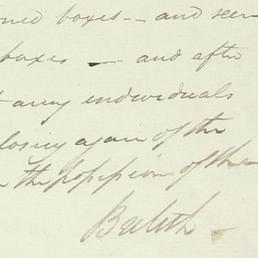 oned boxes — and seen
boxes — and after
any individuals
losing again of the
the possession of the